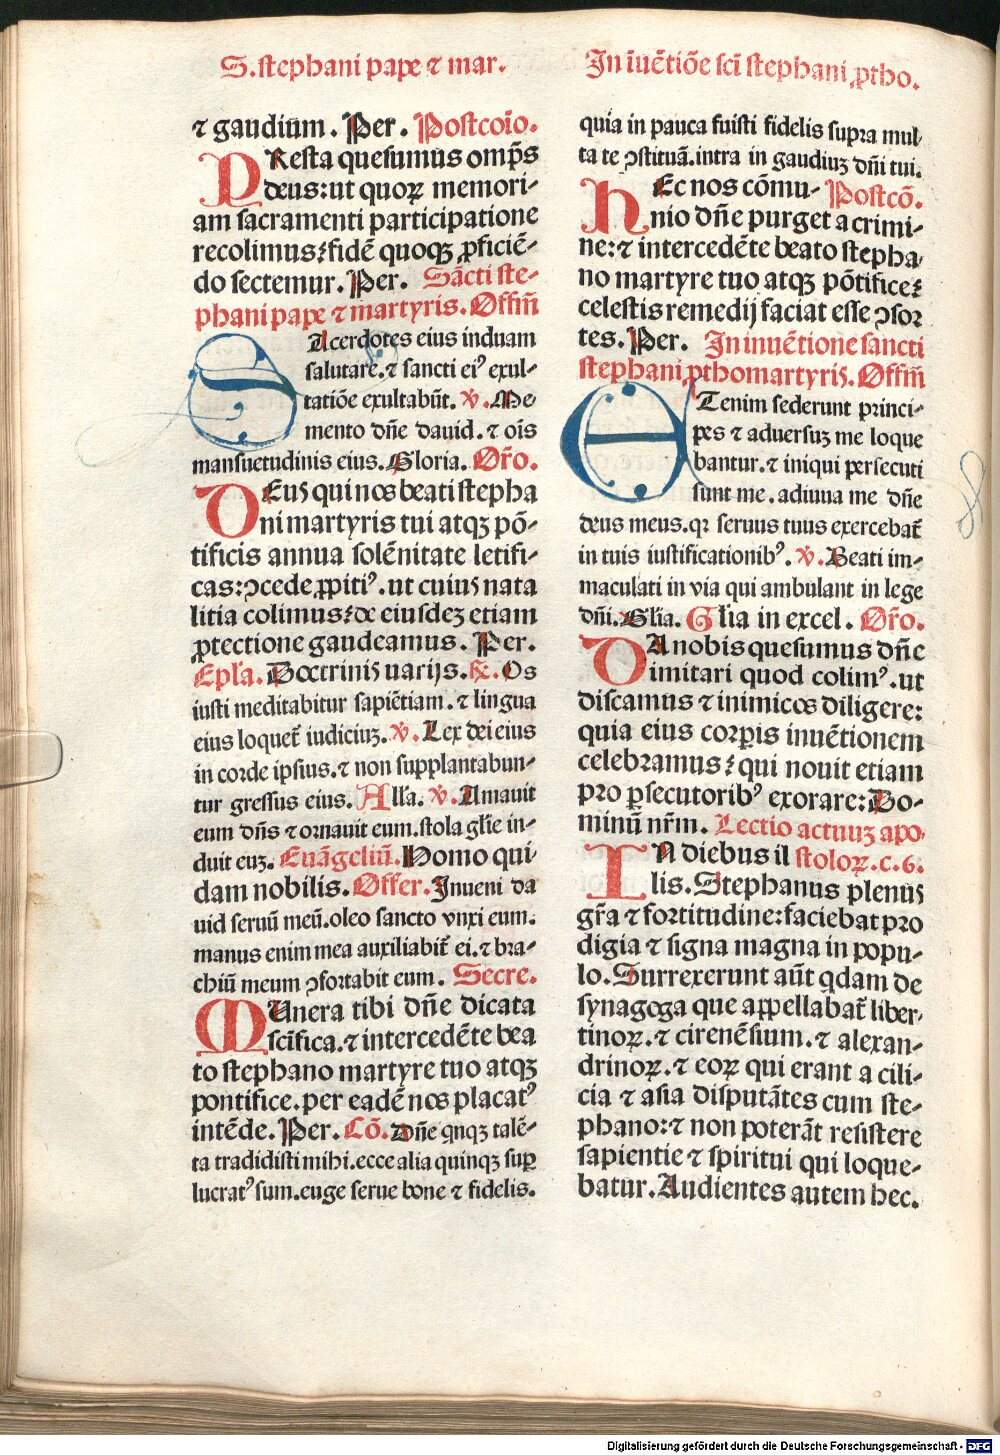 S. stephani pape ⁊ mar.
In iuẽtiõe scĩ stephani ꝓtho.
⁊ gaudium. Per. Postcoĩo.
PResta quesumus omp̃s
deus: ut quoꝝ memori-
am sacramenti participatione
recolimus: fidẽ quoqꝫ ꝓficiẽ-
do sectemur. Per. Sãcti ste-
phani pape ⁊ martyris. Offm̃
SAcerdotes eius induam
salutare. ⁊ sancti eiꝰ exul-
tatiõe exultabũt. ℣. Me
mento dñe dauid. ⁊ oĩs
mansuetudinis eius. Gloria. Or̃o.
DEus qui nos beati stepha
ni martyris tui atqꝫ põ-
tificis annua solẽnitate letifi-
cas: ↄcede ꝓpitiꝰ. ut cuius nata
litia colimus: de eiusdeꝫ etiam
ꝓtectione gaudeamus. Per.
Epl̃a. Doctrinis uarijs. ℟. Os
iusti meditabitur sapiẽtiam. ⁊ lingua
eius loquet̃ iudiciuꝫ. ℣. Lex dei eius
in corde ipsius. ⁊ non supplantabun-
tur gressus eius. All'a. ℣. Amauit
eum dñs ⁊ ornauit eum. stola gl̃ie in-
duit euꝫ. Euãgeliũ. Homo qui-
dam nobilis. Offer. Inueni da
uid seruũ meũ. oleo sancto vnxi eum.
manus enim mea auxiliabit̃ ei. ⁊ bra-
chiũ meum ↄfortabit eum. Secre.
MUnera tibi dñe dicata
sc̃ifica. ⁊ intercedẽte bea
to stephano martyre tuo atqꝫ
pontifice. per eadẽ nos placatꝰ
intẽde. Per. Cõ. Dñe qnqꝫ talẽ-
ta tradidisti mihi. ecce alia quinqꝫ suꝑ
lucratꝰ sum. euge serue bone ⁊ fidelis.
quia in pauca fuisti fidelis supra mul-
ta te ↄstituã. intra in gaudiuꝫ dñi tui.
HEc nos cõmu- Postcõ.
nio dñe purget a crimi-
ne: ⁊ intercedẽte beato stepha-
no martyre tuo atqꝫ põtifice:
celestis remedij faciat esse ↄsor
tes. Per. In inuẽtione sancti
stephani ꝓthomartyris. Offm̃
ETenim sederunt princi-
pes ⁊ aduersuꝫ me loque
bantur. ⁊ iniqui persecuti
sunt me. adiuua me dñe
deus meus. qꝛ seruus tuus exercebat̃
in tuis iustificationibꝰ. ℣. Beati im-
maculati in via qui ambulant in lege
dñi. Gl̃ia. Gl̃ia in excel. Or̃o.
DA nobis quesumus dñe
imitari quod colimꝰ. ut
discamus ⁊ inimicos diligere:
quia eius corꝑis inuẽtionem
celebramus: qui nouit etiam
pro ꝑsecutoribꝰ exorare: Do-
minũ nr̃m. Lectio actuuꝫ apo-
IN diebus il stoloꝝ. c. 6.
lis. Stephanus plenus
gr̃a ⁊ fortitudine: faciebat pro
digia ⁊ signa magna in popu-
lo. Surrexerunt aũt qdam de
synagoga que appellabat̃ liber-
tinoꝝ. ⁊ cirenẽsium. ⁊ alexan-
drinoꝝ. ⁊ eoꝝ qui erant a cili-
cia ⁊ asia disputãtes cum ste-
phano: ⁊ non poterãt resistere
sapientie ⁊ spiritui qui loque-
batur. Audientes autem hec.
Digitalisierung gefördert durch die Deutsche Forschungsgemeinschaft - DFG